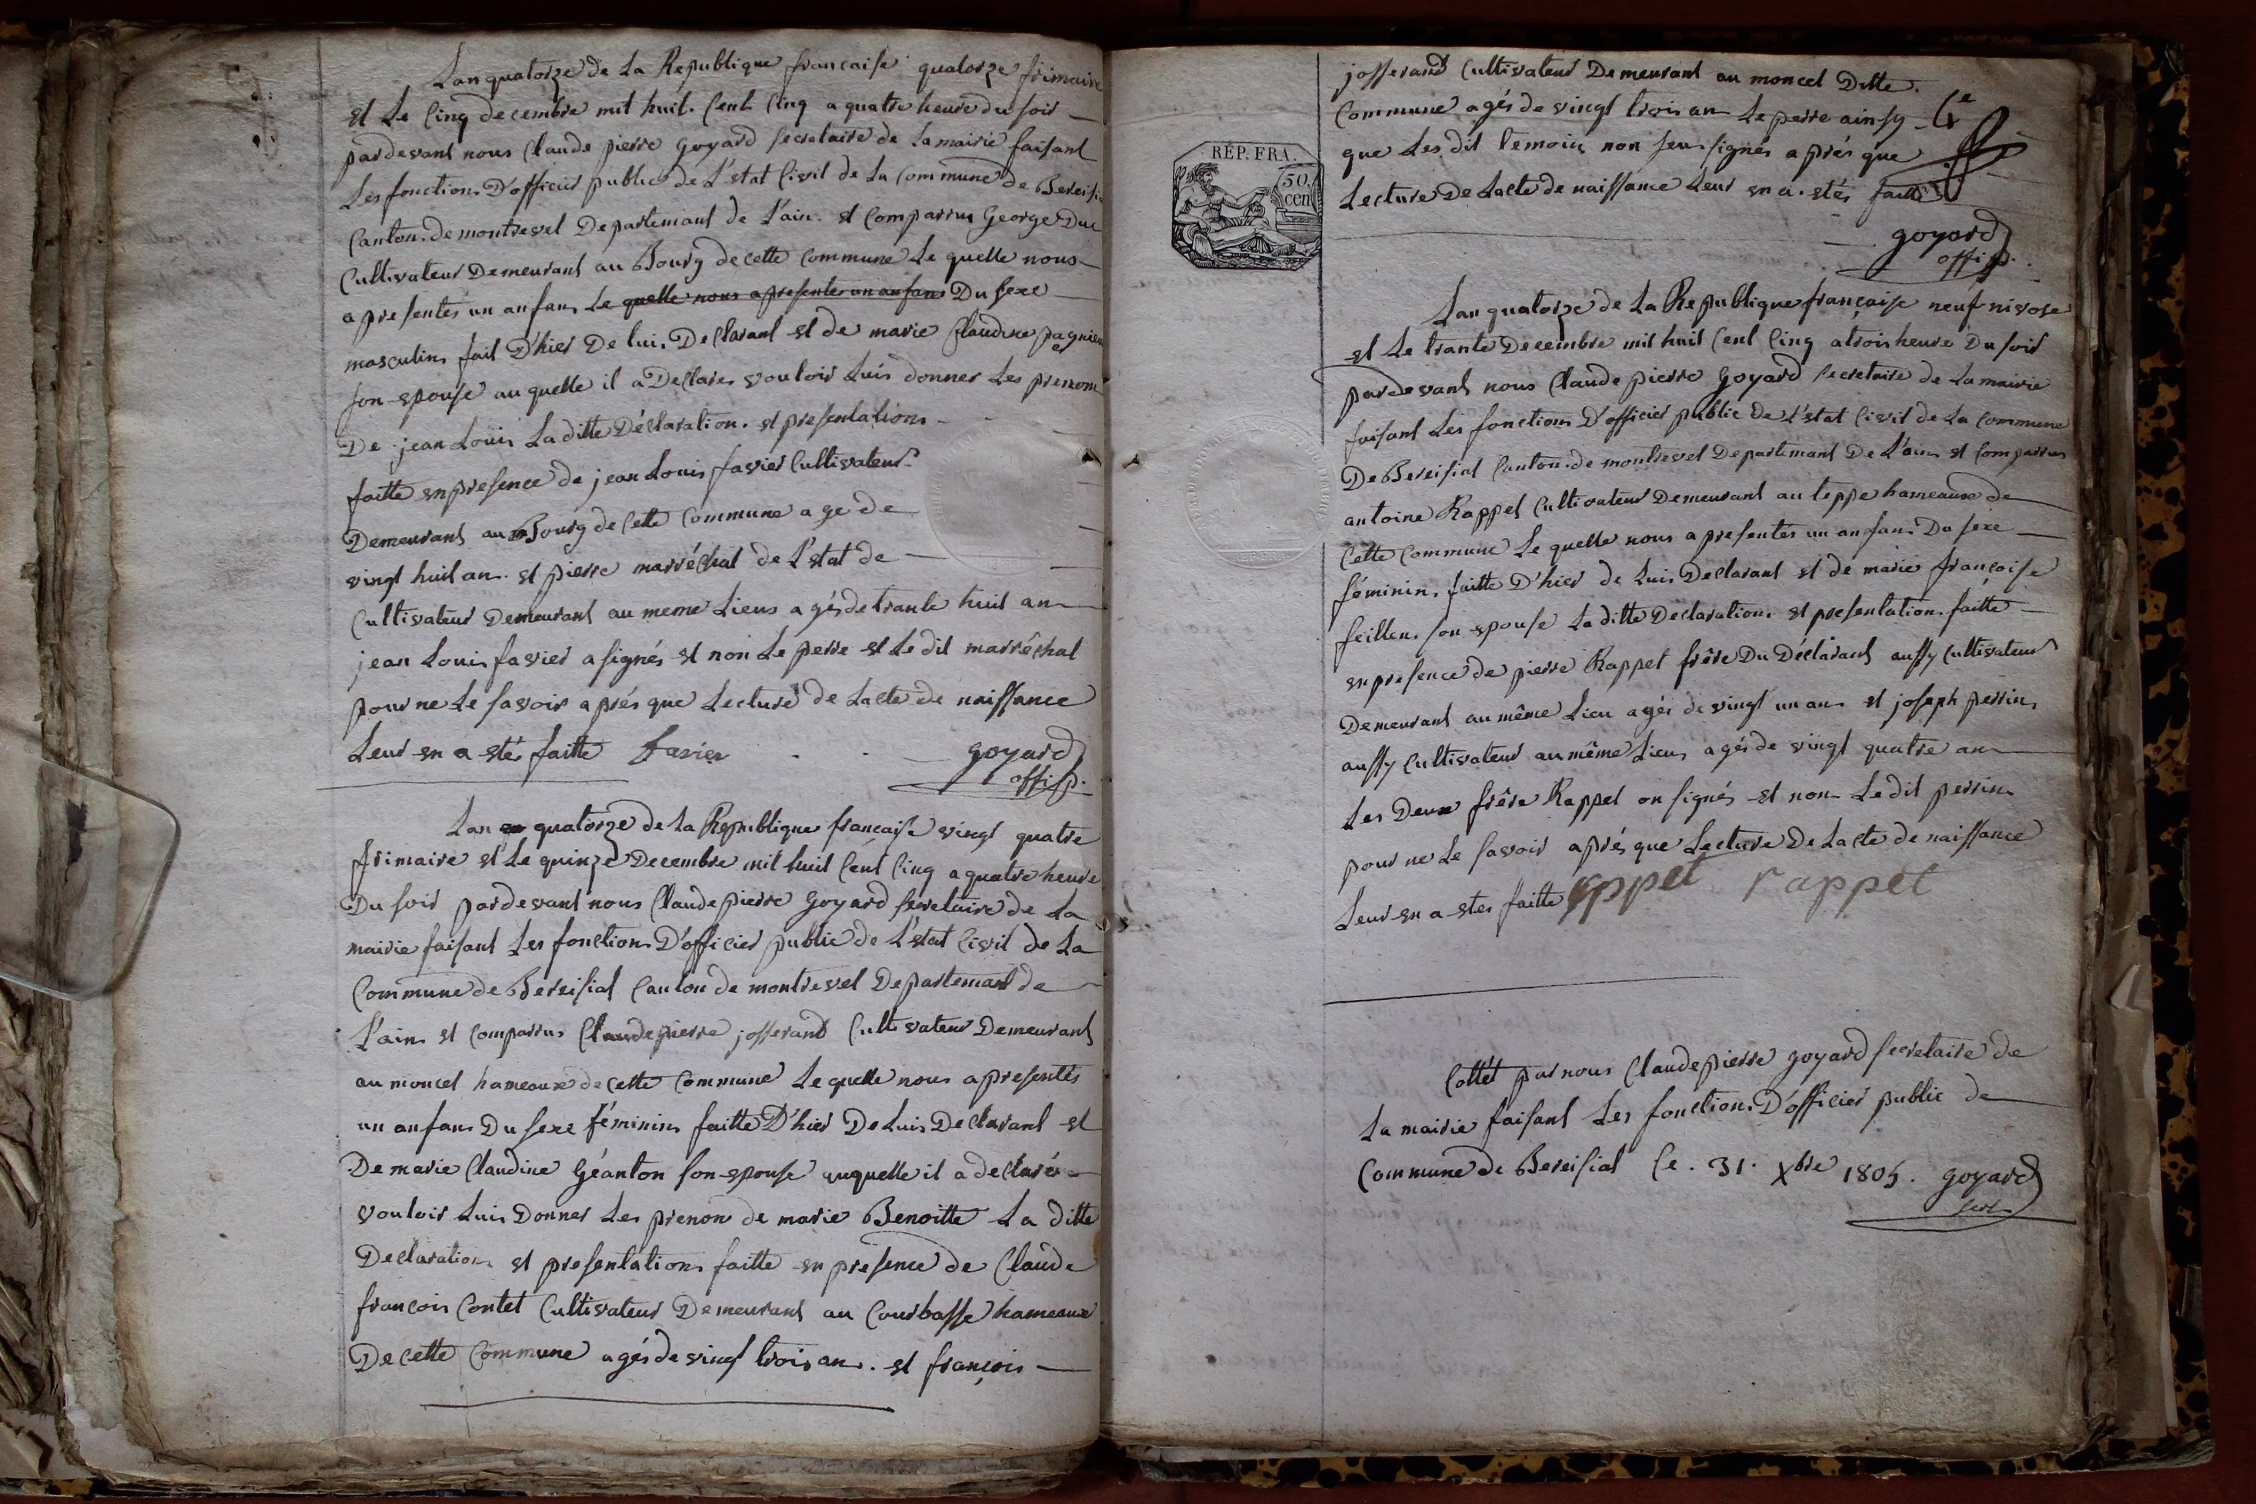 Lan quatorze de La Republique francaise quatorze frimaire
et Le Cinq decembre mil huit Cent Cinq a quatre heure du soir
pardevant nous Claude pierre Goyard secretaire de La mairie faisant
Les fonction D'officier public de L'etat Civil de La Commune de Bereisia
Canton de montrevel Departemant de L'ain et Comparru George Duc
Cultivateur Demeurant au Bourg de cette Commune Le quelle nous
a presentés un anfan Le quelle nous a presenter un anfans Du sexe
masculin fait D'hier De lui Declarant et de marie Claudine pagnieu
son epouse au quelle il a Declarer vouloir Luis donner Les prenom
De jean Louis La ditte Déclaration et presentations
faitte en presence de jean Louis favier Cultivateur
Demeurant au Bourg de Cette Commune age de
vingt huit an et pierre marréchal de L'etat de
Cultivateur Demeurant au meme Lieux agés de trante huit an
jean Louis favier a signés et non Le perre et Le dit marréchal
pour ne Le savoir aprés que Lecture de Lacte de naissance
Leur en a etés faitte favier goyard
offi p.
Lan quatorze de La Republique française vingt quatre
frimaire et Le quinze Decembre mil huit Cent Cinq a quatre heure
Du soir pardevant nous Claude pierre Goyard secretaire de La
mairie faisant Les fonction D'officier public de L'etat Civil de La
Commune de Bereisiat Canton de montrevel Departemant de
L'ain et Comparru Claude pierre josserand Cultivateur Demeurant
au moncel hameaux de cette Commune Le quelle nous a presentés
un anfans Du sexe féminin faitte D'hier De Luis Declarant et
De marie Claudine Géanton son epouse auquelle il a declarér
vouloir Luis Donner Les prenon de marie Benoitte La ditte
Declaration et presentation faitte en presence de Claude
françois Contet Cultivateur Demeurant au Courbasse hameaux
De cette Commune agés de vingt trois an et françois
josserand Cultivateur Demeurant au moncel Ditte
Commune agés de vingt trois an Le perre ainsy
que Les dit temoin non seu signés aprés que
Lecture De Lacte de naissance Leur en a etés faitte
RÉP. FRA.
50
cen
goyard
offi p.
Lan quatorze de La Republique française neuf nivose
et Le trante Decembre mil huit Cent Cinq a trois heure Du soir
pardevant nous Claude pierre Goyard secretaire de La mairie
faisant Les fonction D'officier public de L'etat Civil de La Commune
De Bereisiat Canton de montrevel Departemant De L'ain et Comparru
antoine Rappet Cultivateur Demeurant au teppe hameaux de
Cette Commune Le quelle nous a presentés un anfans Du sexe
féminin faitte D'hier de Luis Declarant et de marie françoise
feillen son epouse La ditte Declaration et presentation faitte
en presence de pierre Rappet frêre Du Déclarant aussy Cultivateur
Demeurant au même Lieu agés de vingt un an et joseph perrin
aussy Cultivateur au même Lieu agés de vingt quatre an
Les Deux frêre Rappet on signés et non Le dit perrin
pour ne Le savoir aprés que Lecture De Lacte de naissance
Leur en a etes faitte rappet
Cottét par nous Claude pierre goyard secretaire de
La mairie faisant Les fonction D'officier public de
Commune de Bereisiat Ce 31 Xbre 1805 goyard